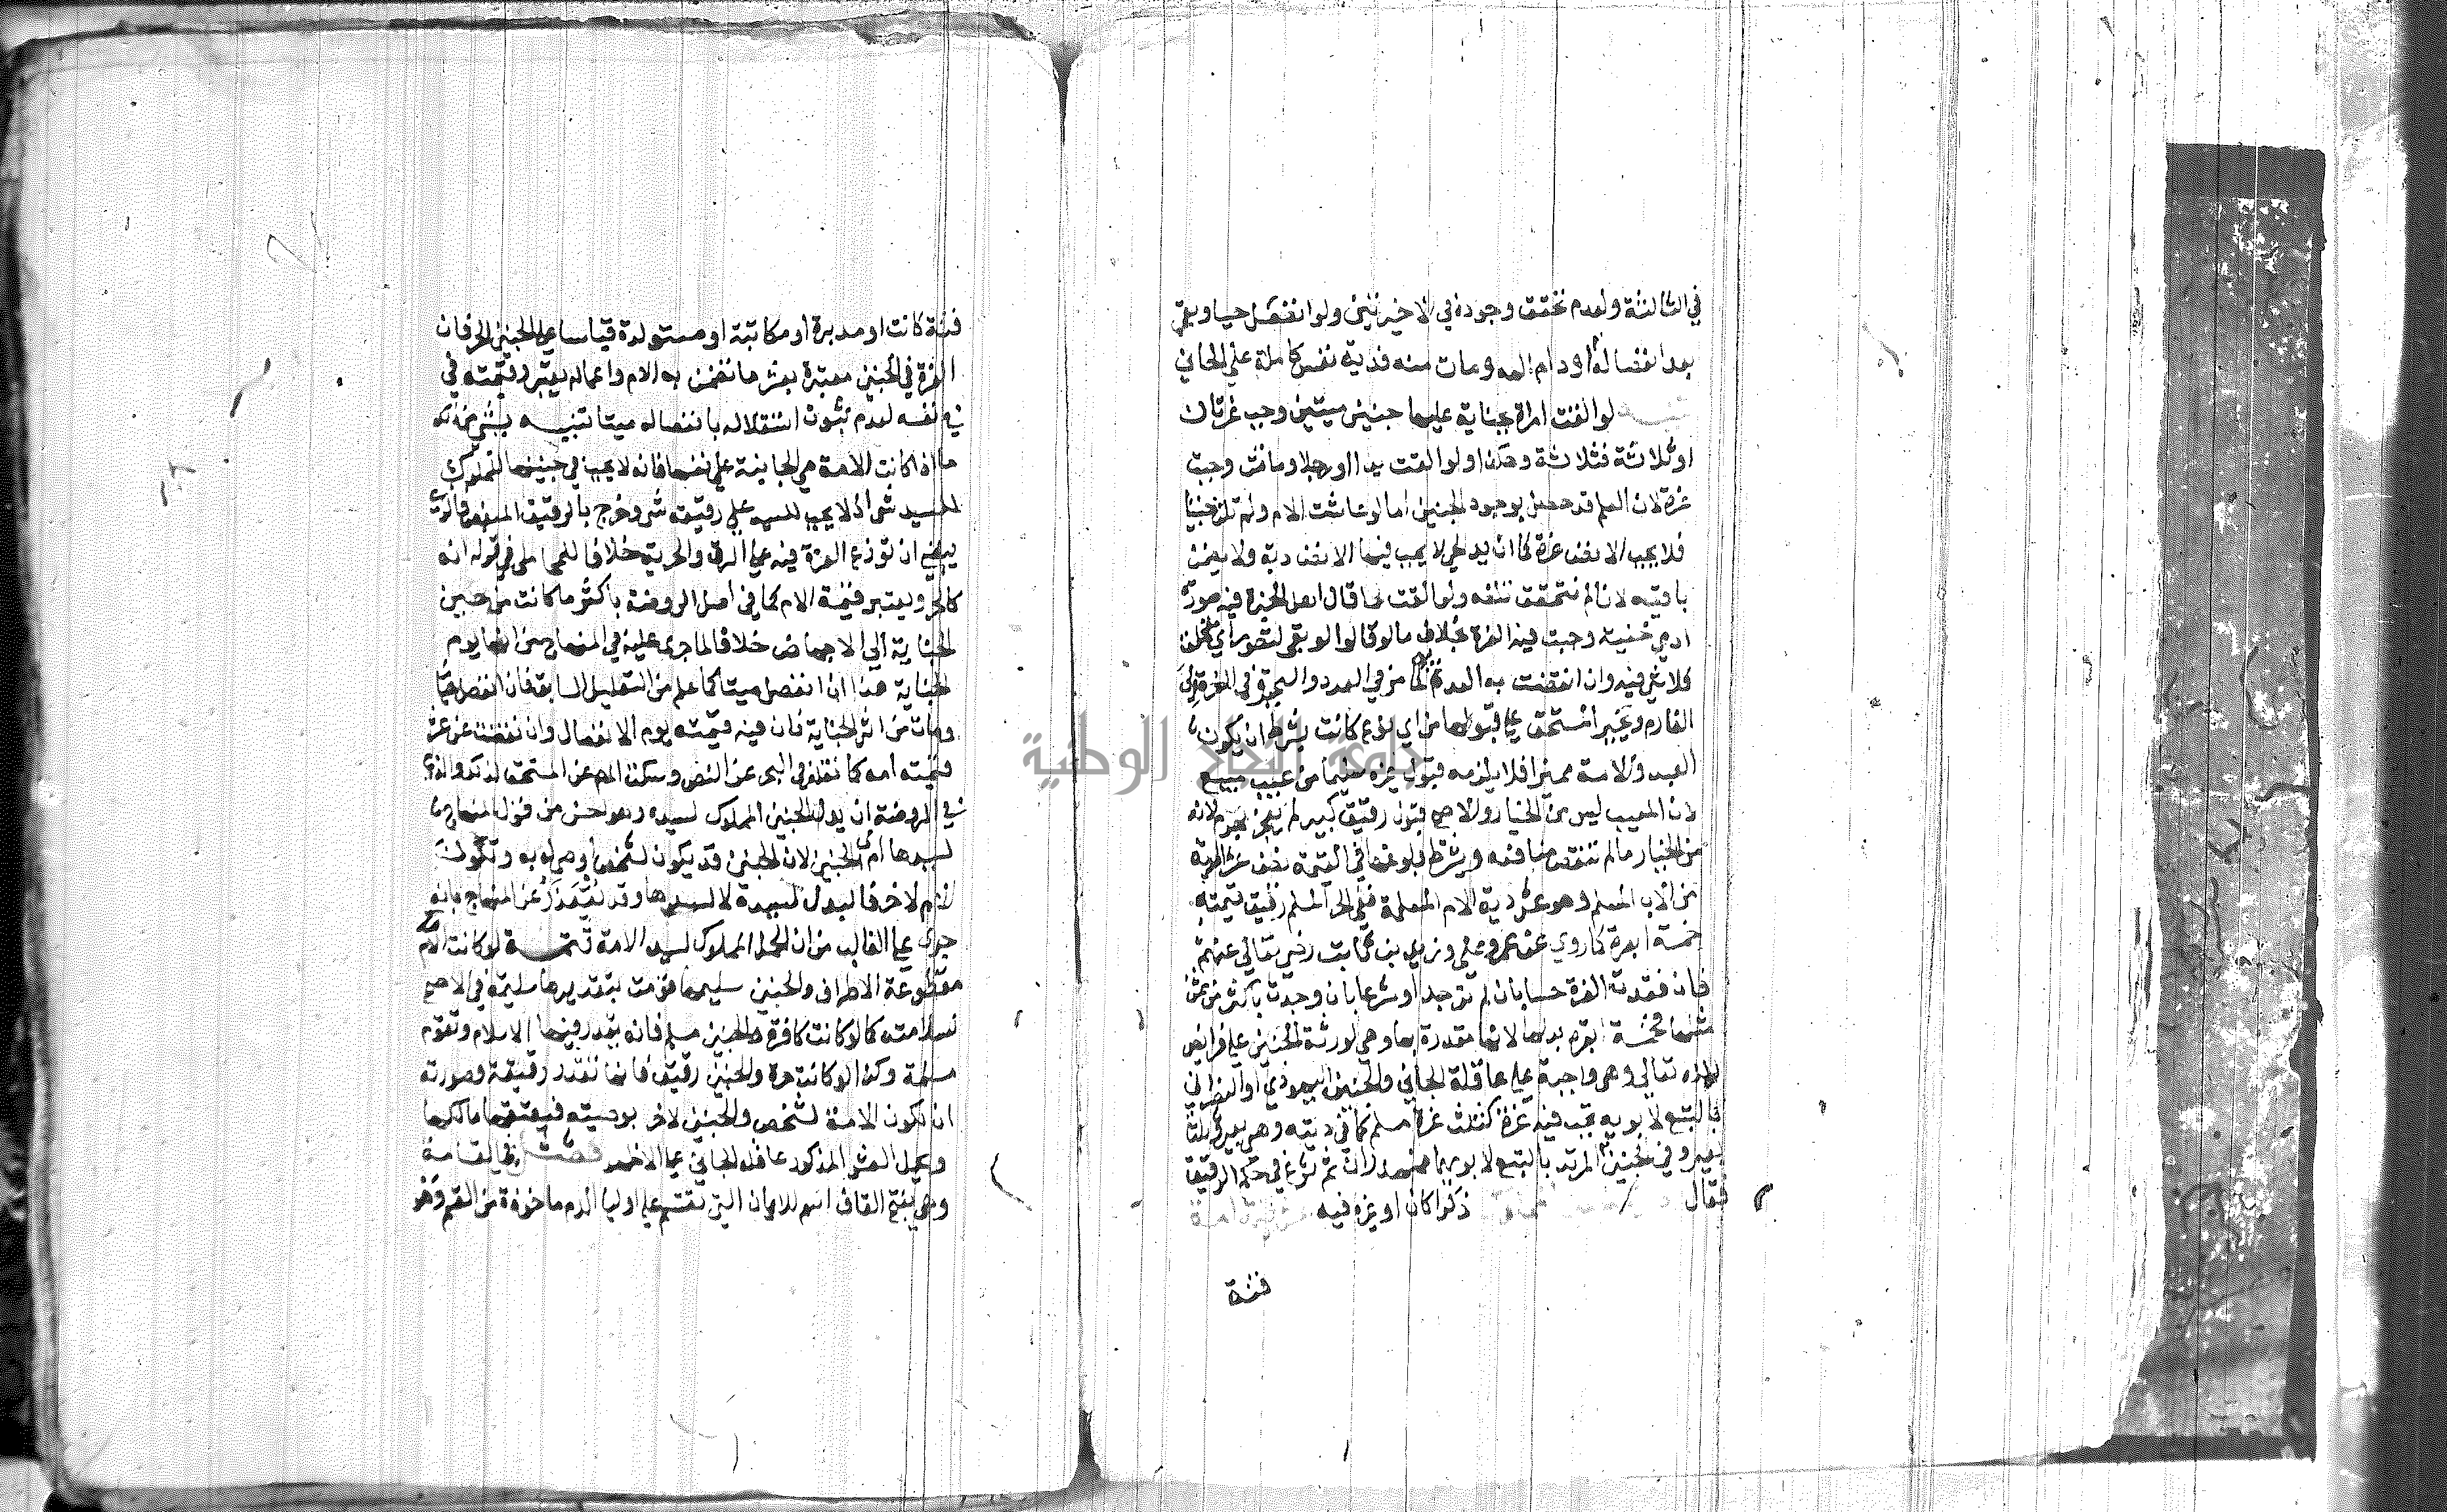 في الثالثة ولعدم تحقق وجوده في الاخيرتين ولو انفصل حيا وبقي
بعد انفصاله او دام المه ومات منه فدية نفس كاملة على الجاني
لو القت امراة بجناية عليها جنينين ميتين وجب غرتان
او ثلاثة فثلاثة وهكذا ولو القت يدا او رجلا وماتت وجبت
غرة لان العلم قد حصل بوجود الجنين اما لو عاشت الام ولم تلق جنينا
فلا يجب الا نصف غرة كما ان يد الحي لا يجب فيها الا نصف دية ولا يضمن
باقيه لانا لم نتحقق تلفه ولو القت لحما قال اهل الخبرة فيه صورة
ادمي خفية وجبت فيه الغرة بخلاف ما لو قالوا لو بقي لتصور اي تخلق
فلا شي فيه وان انقضت به العدة كما مر في العدد والخيرة في الغرة الى
الغارم ويجبر المستحق على قبولها من اي نوع كانت بشرط ان يكون
العبد والامة مميزا فلا يلزمه قبول غيره سليما من عيب مبيع
لان المعيب ليس من الخيار والاصح قبول رقيق كبير لم يعجز بهرم لانه
من الخيار ما لم تنقص منافعه ويشترط بلوغها في القيمة نصف عشر الدية
من الاب المسلم وهو عشر دية الام المسلمة ففي الحر المسلم رقيق قيمته
خمسة ابعرة كما روي عن عمر وعلي وزيد بن ثابت رضي تعالى عنهم
فان فقدت الغرة حسا بان لم توجد او شرعا بان وجدت باكثر من ثمن
مثلها فخمسة ابعرة بدلها لانها مقدرة بها وهي لورثة الجنين على فرايض
الله تعالى وهي واجبة على عاقلة الجاني والجنين اليهودي او النصراني
بالتبع لابويه تجب فيه غرة كثلث غرة مسلم كما في ديته وهي بعير وثلثا
بعير وفي الجنين المرتد بالتبع لابويهما مهدران ثم شرع في حكم الرقيق
فقال ذكرا كان او غيره فيه عشر قيمة امه
قنة
قنة كانت او مدبرة او مكاتبة او مستولدة قياسا على الجنين الحر فان
الغرة في الجنين معتبرة بعشر ما تضمن به الام وانما لم يعتبر قيمته في
في نفسه لعدم ثبوت استقلاله بانفصاله ميتا تنبيه يستثنى من ذلك
ما اذا كانت الامة هي الجانية على نفسها فانه لا يجب في جنينها المملوك
للسيد شي اذ لا يجب للسيد على رقيقه شي وخرج بالرقيق المبعض فالذي
ينبغي ان توزع الغرة فيه على الرق والحرية خلافا للمحاملي في قوله انه
كالحر ويعتبر قيمة الام كما في اصل الروضة باكثر ما كانت من حين
الجناية الى الاجهاض خلافا لما جرى عليه في المنهاج من انها يوم
الجناية هذا ان انفصل ميتا كما علم من التعليل السابق فان انفصل حيا
ومات من اثر الجناية فان فيه قيمته يوم الانفصال وان نقصت عن عشر
قيمته امه كما نقله في البحر عن النص وسكت المص عن المستحق لذلك والذي
في الروضة ان بدل الجنين المملوك لسيده وهو احسن من قول المنهاج
لسيدها اي الجنين لان الجنين قد يكون لشخص اوصى له به وتكون
الام لاخر فالبدل لسيده لا لسيدها وقد يعتذر عن المنهاج بانه
جرى على الغالب من ان الحمل المملوك لسيد الامة تتمة لو كانت الام
مقطوعة الاطراف والجنين سليمها قومت بتقديرها سليمة في الاصح
لسلامته كما لو كانت كافرة والجنين مسلم فانه يقدر فيها الاسلام وتقوم
مسلمة وكذا لو كانت حرة والجنين رقيق فانها تقدر رقيقة وصورته
ان تكون الامة لشخص والجنين لاخر بوصيته فيعتقها مالكها
ويحمل العشر المذكور عاقلة الجاني على الاظهر فصل في القسامة
وهي بفتح القاف اسم للايمان التي تقسم على اوليا الدم ماخوذة من القسم وهو
جامعة النجاح الوطنية